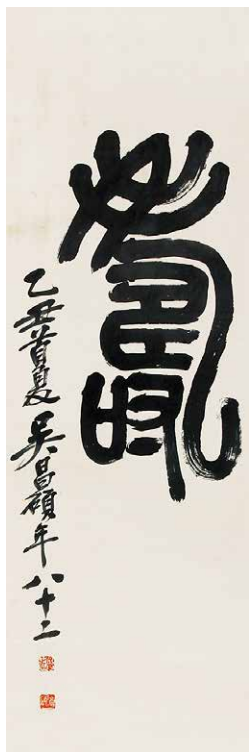 壽
乙丑首夏吴昌碩年八十二